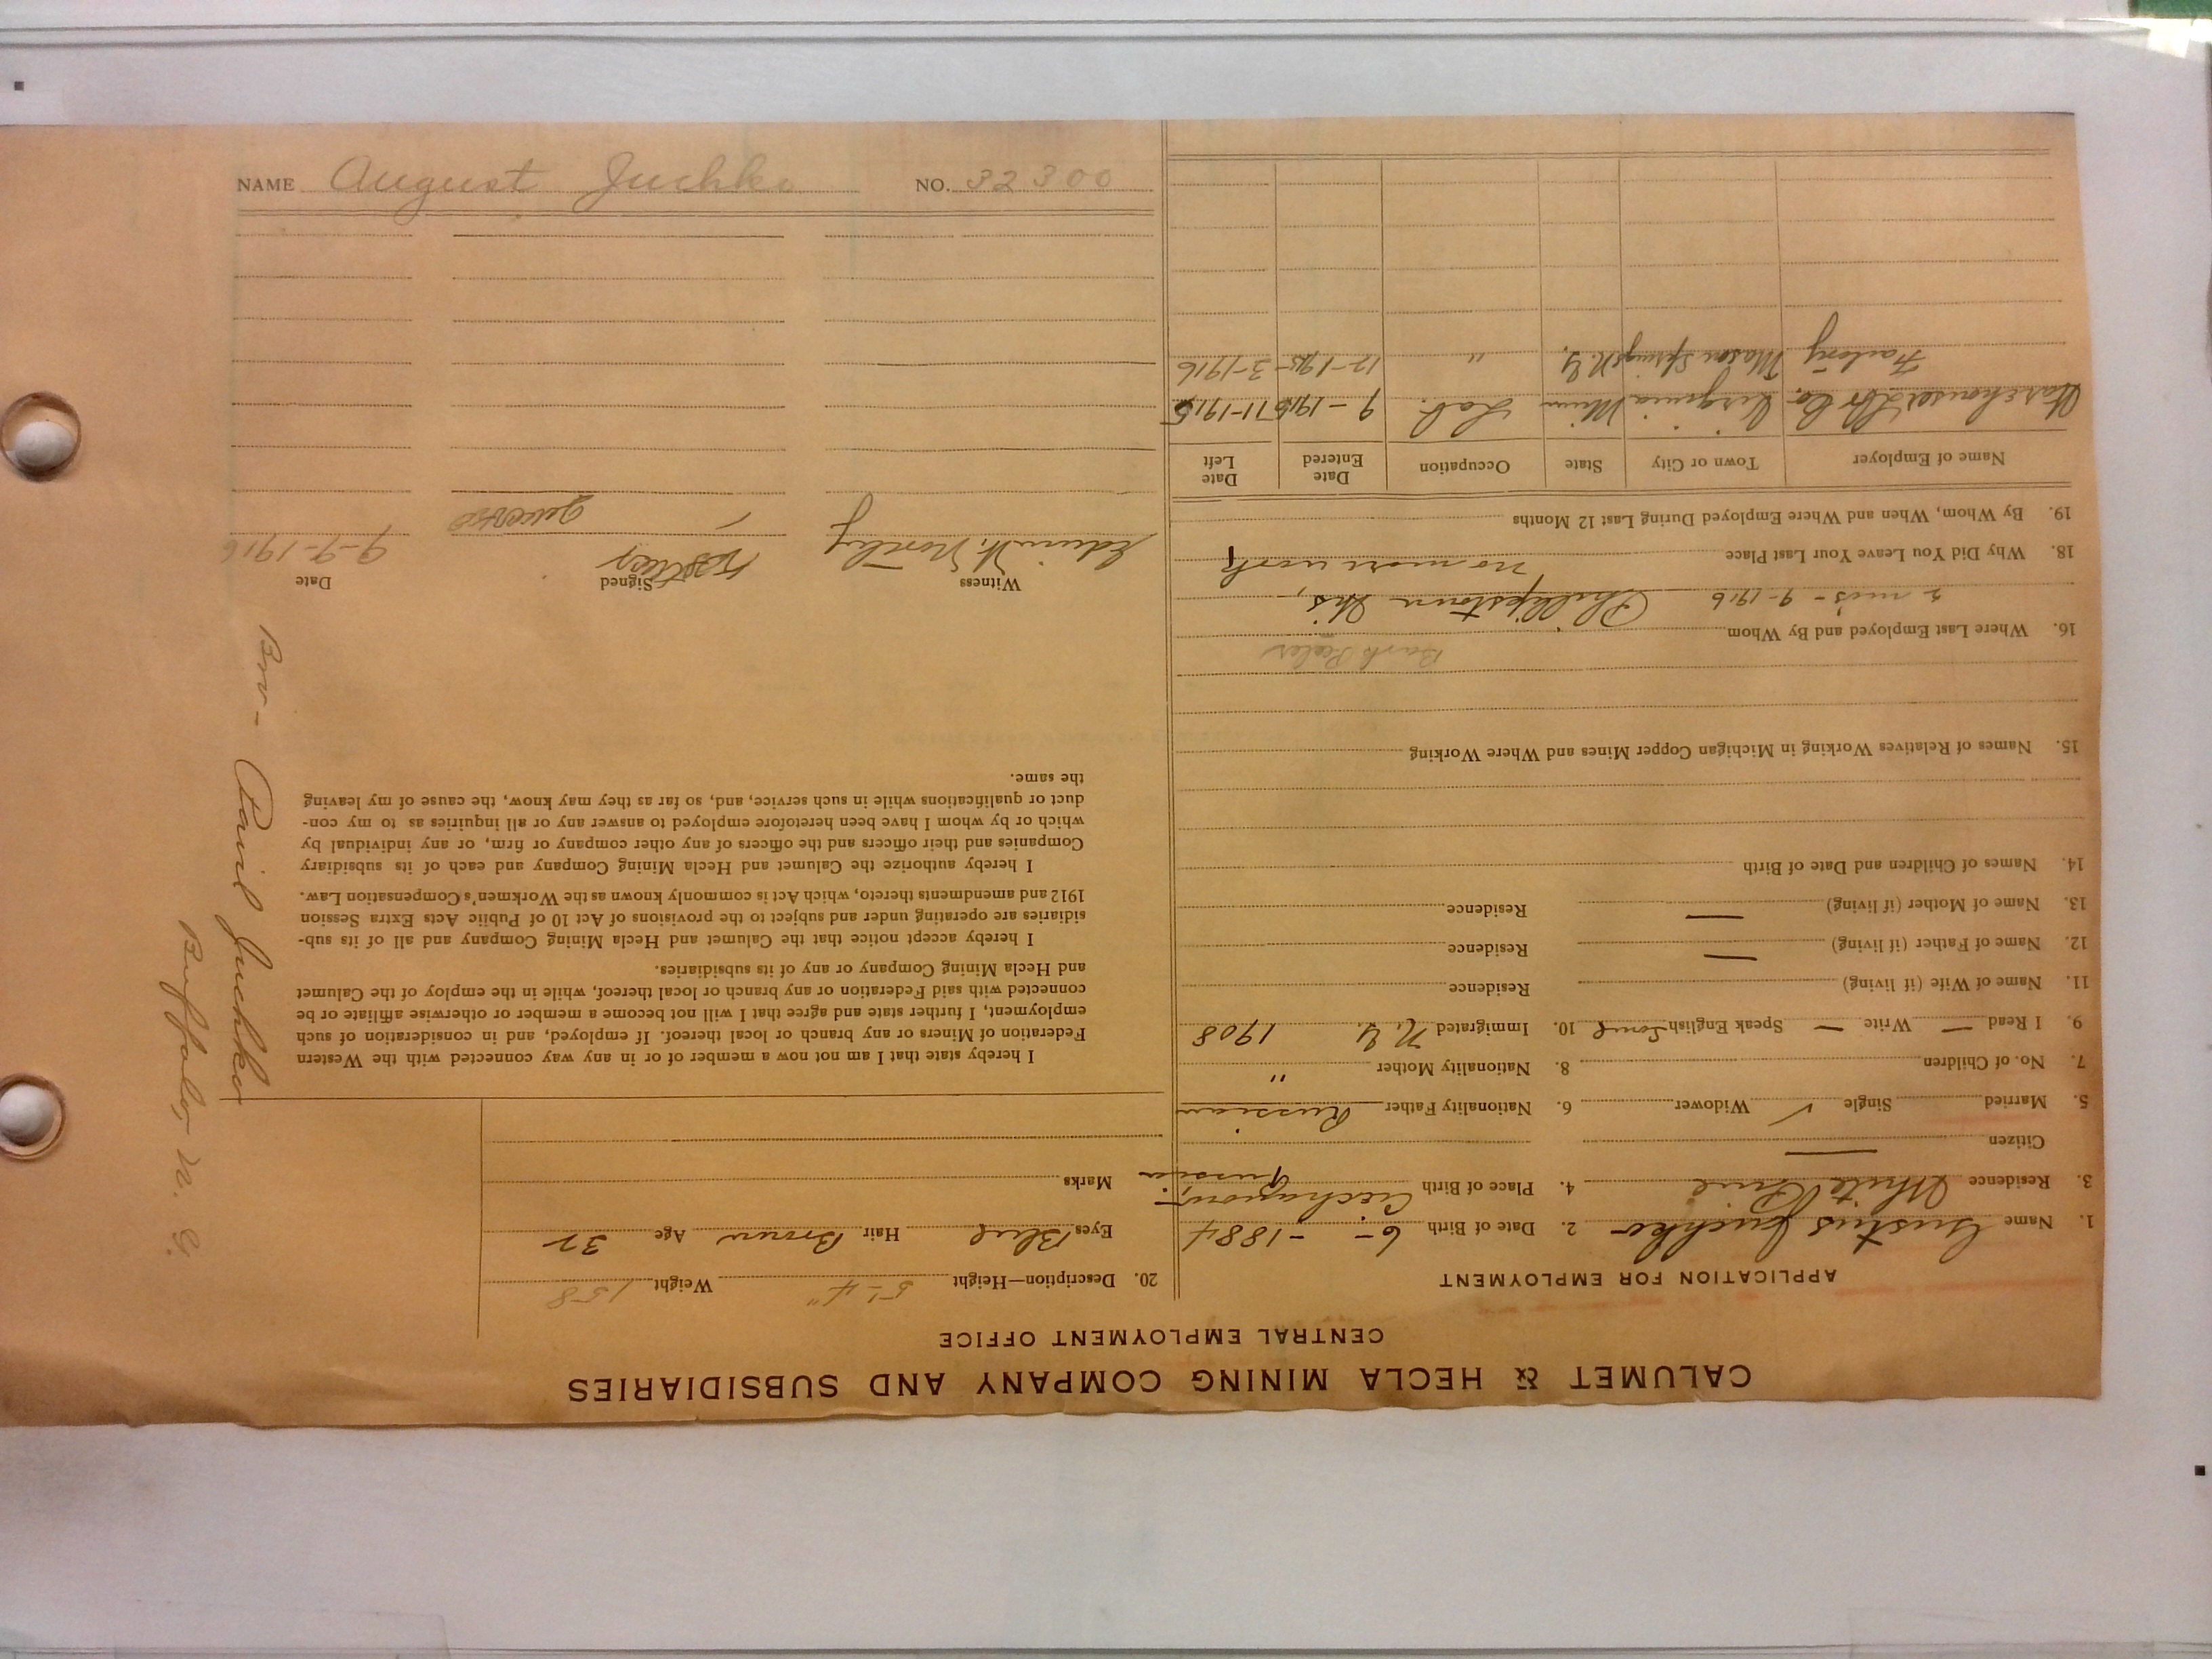 CALUMET & HECLA MINING COMPANY AND SUBSIDIARIES
CENTRAL EMPLOYMENT OFFICE
APPLICATION FOR EMPLOYMENT
1. Name Gustus Juchko 2. Date of Birth 6- -1884
3. Residence White Pine 4. Place of Birth
Russia
Citizen —
5. Married Single ✓ Widower 6. Nationality Father Russian
7. No. of Children 8. Nationality Mother "
9. I Read — Write — Speak English Some 10. Immigrated N.Y. 1908
11. Name of Wife (if living) Residence
12. Name of Father (if living) — Residence
13. Name of Mother (if living) — Residence
14. Names of Children and Date of Birth
15. Names of Relatives Working in Michigan Copper Mines and Where Working
Bark Peeler
16. Where Last Employed and By Whom
2 mos - 9-1916 Phillipstown Wis,
18. Why Did You Leave Your Last Place no more work
19. By Whom, When and Where Employed During Last 12 Months
Name of Employer Town or City State Occupation Date Entered Date Left
Virginia Minn Lab. 9-1915 11-1915
Factory Mason Springs N.Y. " 12-1915 3-1916
20. Description—Height 5'-4" Weight 158
Eyes Blue Hair Brown Age 32
Marks
I hereby state that I am not now a member of or in any way connected with the Western
Federation of Miners or any branch or local thereof. If employed, and in consideration of such
employment, I further state and agree that I will not become a member or otherwise affiliate or be
connected with said Federation or any branch or local thereof, while in the employ of the Calumet
and Hecla Mining Company or any of its subsidiaries.
I hereby accept notice that the Calumet and Hecla Mining Company and all of its sub-
sidiaries are operating under and subject to the provisions of Act 10 of Public Acts Extra Session
1912 and amendments thereto, which Act is commonly known as the Workmen's Compensation Law.
I hereby authorize the Calumet and Hecla Mining Company and each of its subsidiary
Companies and their officers and the officers of any other company or firm, or any individual by
which or by whom I have been heretofore employed to answer any or all inquiries as to my con-
duct or qualifications while in such service, and, so far as they may know, the cause of my leaving
the same.
Witness Signed Date
Edwin H. 9-9-1916
Bro- Paul Juchko
Buffalo, N.Y.
NAME August Juchko NO. 32300